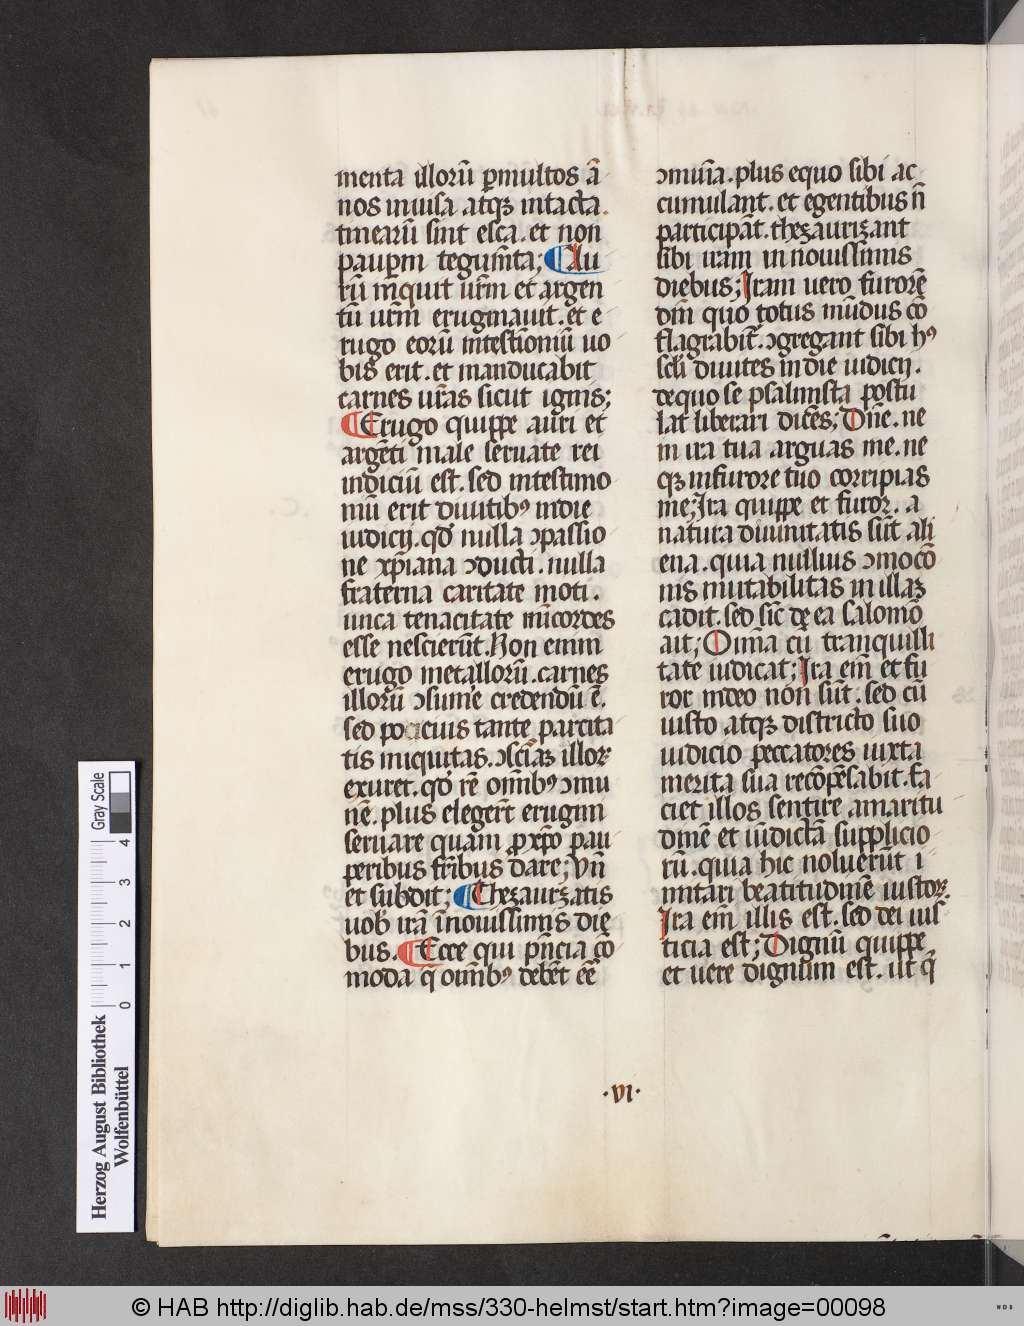 menta illorū ꝑmultos ā
nos inuisa atqꝫ intacta.
tinearū sint esca. et non
pauꝑm tegum̄ta; Au
rū inquit ur̄m et argen
tū ur̄m eruginauit. et e
rugo eorū in testīoniū uo
bis erit. et manducabit
carnes ur̄as sicut ignis;
Erugo quippe auri et
argēti male seruate rei
indiciū est. sed in testimo
niū erit diuitibꝰ in die
iudicij. qd̄ nulla ꝯpassio
ne xp̄iana ꝯducti. nulla
fraterna caritate moti.
unca tenacitate mīcordes
esse nescierūt. Non enim
erugo metallorū. carnes
illorū ꝯsume credendū ē.
sed pocius tante parcita
tis iniquitas. ꝯscīaꝫ illoꝝ
exuret. qd̄ rē om̄ibꝰ ꝯmu
nē. plus elegerr̄t erugini
seruare quam ꝓ xp̄o pau
peribus fr̄ibus dare; Vn̄
et subdit; Thezaurizatis
uob̄ irā ī nouissimis die
bus. Ecce qui p̄ncia cō
moda q̄ om̄ibꝰ debēt eē
ꝯmuīa. plus equo sibi ac
cumulant. et egentibus n̄
participāt. thezaurizant
sibi iram in nouissīmis
diebus; Iram uero furorē
dn̄i quo totus mūdus cō
flagrabit̄. ꝯgregant sibi hꝰ
scl̄i diuites in die iudicij.
de quo se psalmista postu
lat liberari dicēs; Dn̄e. ne
in ira tua arguas me. ne
qꝫ in furore tuo corripias
me; Ira quippe et furor. a
natura diuinitatis sūt ali
ena. quia nullius ꝯmocō
nis mutabilitas in illaꝫ
cadit. sed sic̄ de ea Salomō
ait; Oīma cū tranquilli
tate iudicat; Ira em̄ et fu
ror in deo non sūt. sed cū
iusto atqꝫ districto suo
iudicio peccatores iuxta
merita sua recōpēsabit. fa
ciet illos sentire amaritu
dinē et iīidictā supplicio
rū. quia hic noluerūt i
mitari beatitudinē iustoꝝ.
Ira em̄ illis est. sed dei ius̄
ticia est; Dignū quippe
et uere dignum est. ut q̄
·VI·
Herzog August Bibliothek
Wolfenbüttel
0 1 2 3 4
Gray Scale
© HAB http://diglib.hab.de/mss/330-helmst/start.htm?image=00098